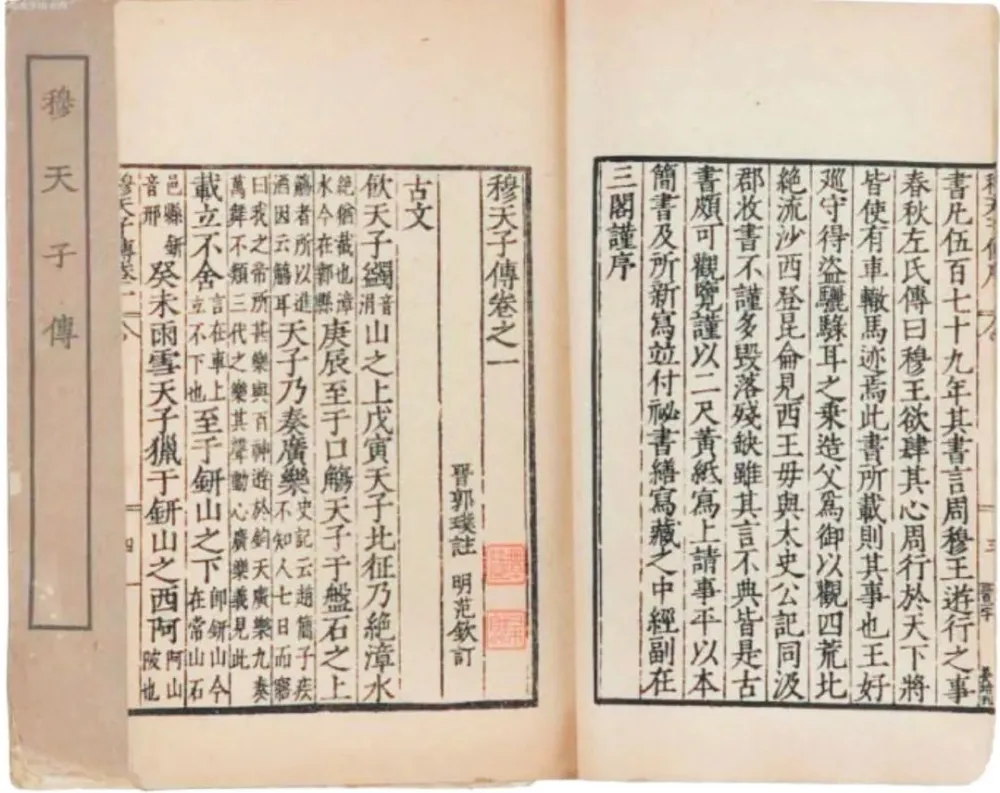 穆天子傳
書凡伍百七十九年其書言周穆王遊行之事
春秋左氏傳曰穆王欲肆其心周行於天下將
皆使有車轍馬迹焉此書所載則其事也王好
巡守得盜驪騄耳之乘造父爲御以觀四荒北
絕流沙西登昆侖見西王母與太史公記同汲
郡收書不謹多毀落殘缺雖其言不典皆是古
書頗可觀覽謹以二尺黃紙寫上請事平以本
簡書及所新寫並付祕書繕寫藏之中經副在
三閣謹序
穆天子傳卷之一
晉郭璞註 明范欽訂
古文
飲天子蠲音涓山之上戊寅天子北征乃絕漳水
絕猶截也漳水今在鄴縣庚辰至于口觴天子于盤石之上
觴者所以進酒因云觴耳天子乃奏廣樂史記云趙簡子疾不知人七日而寤
曰我之帝所甚樂與百神遊於鈞天廣樂九奏萬舞不類三代之樂其聲動心廣樂義見此
載立不舍言在車上立不下也至于鈃山之下即鈃山今在常山石
邑縣鈃音邢癸未雨雪天子獵于鈃山之西阿阿山陂也
穆天子傳卷一
四